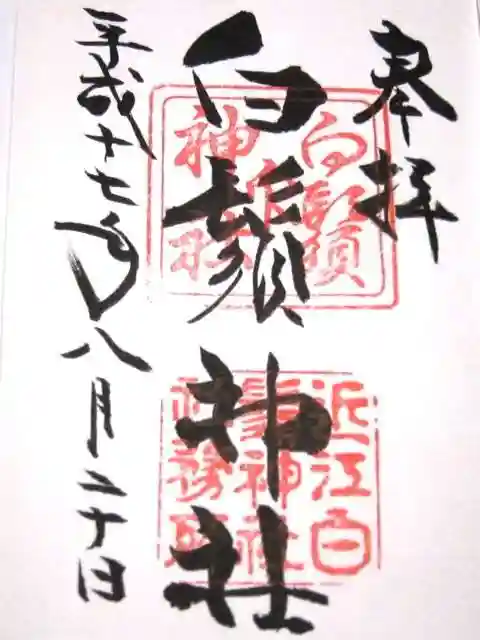 奉拝
白鬚神社
平成十七年八月二十日
近江白
髪神社
社務所